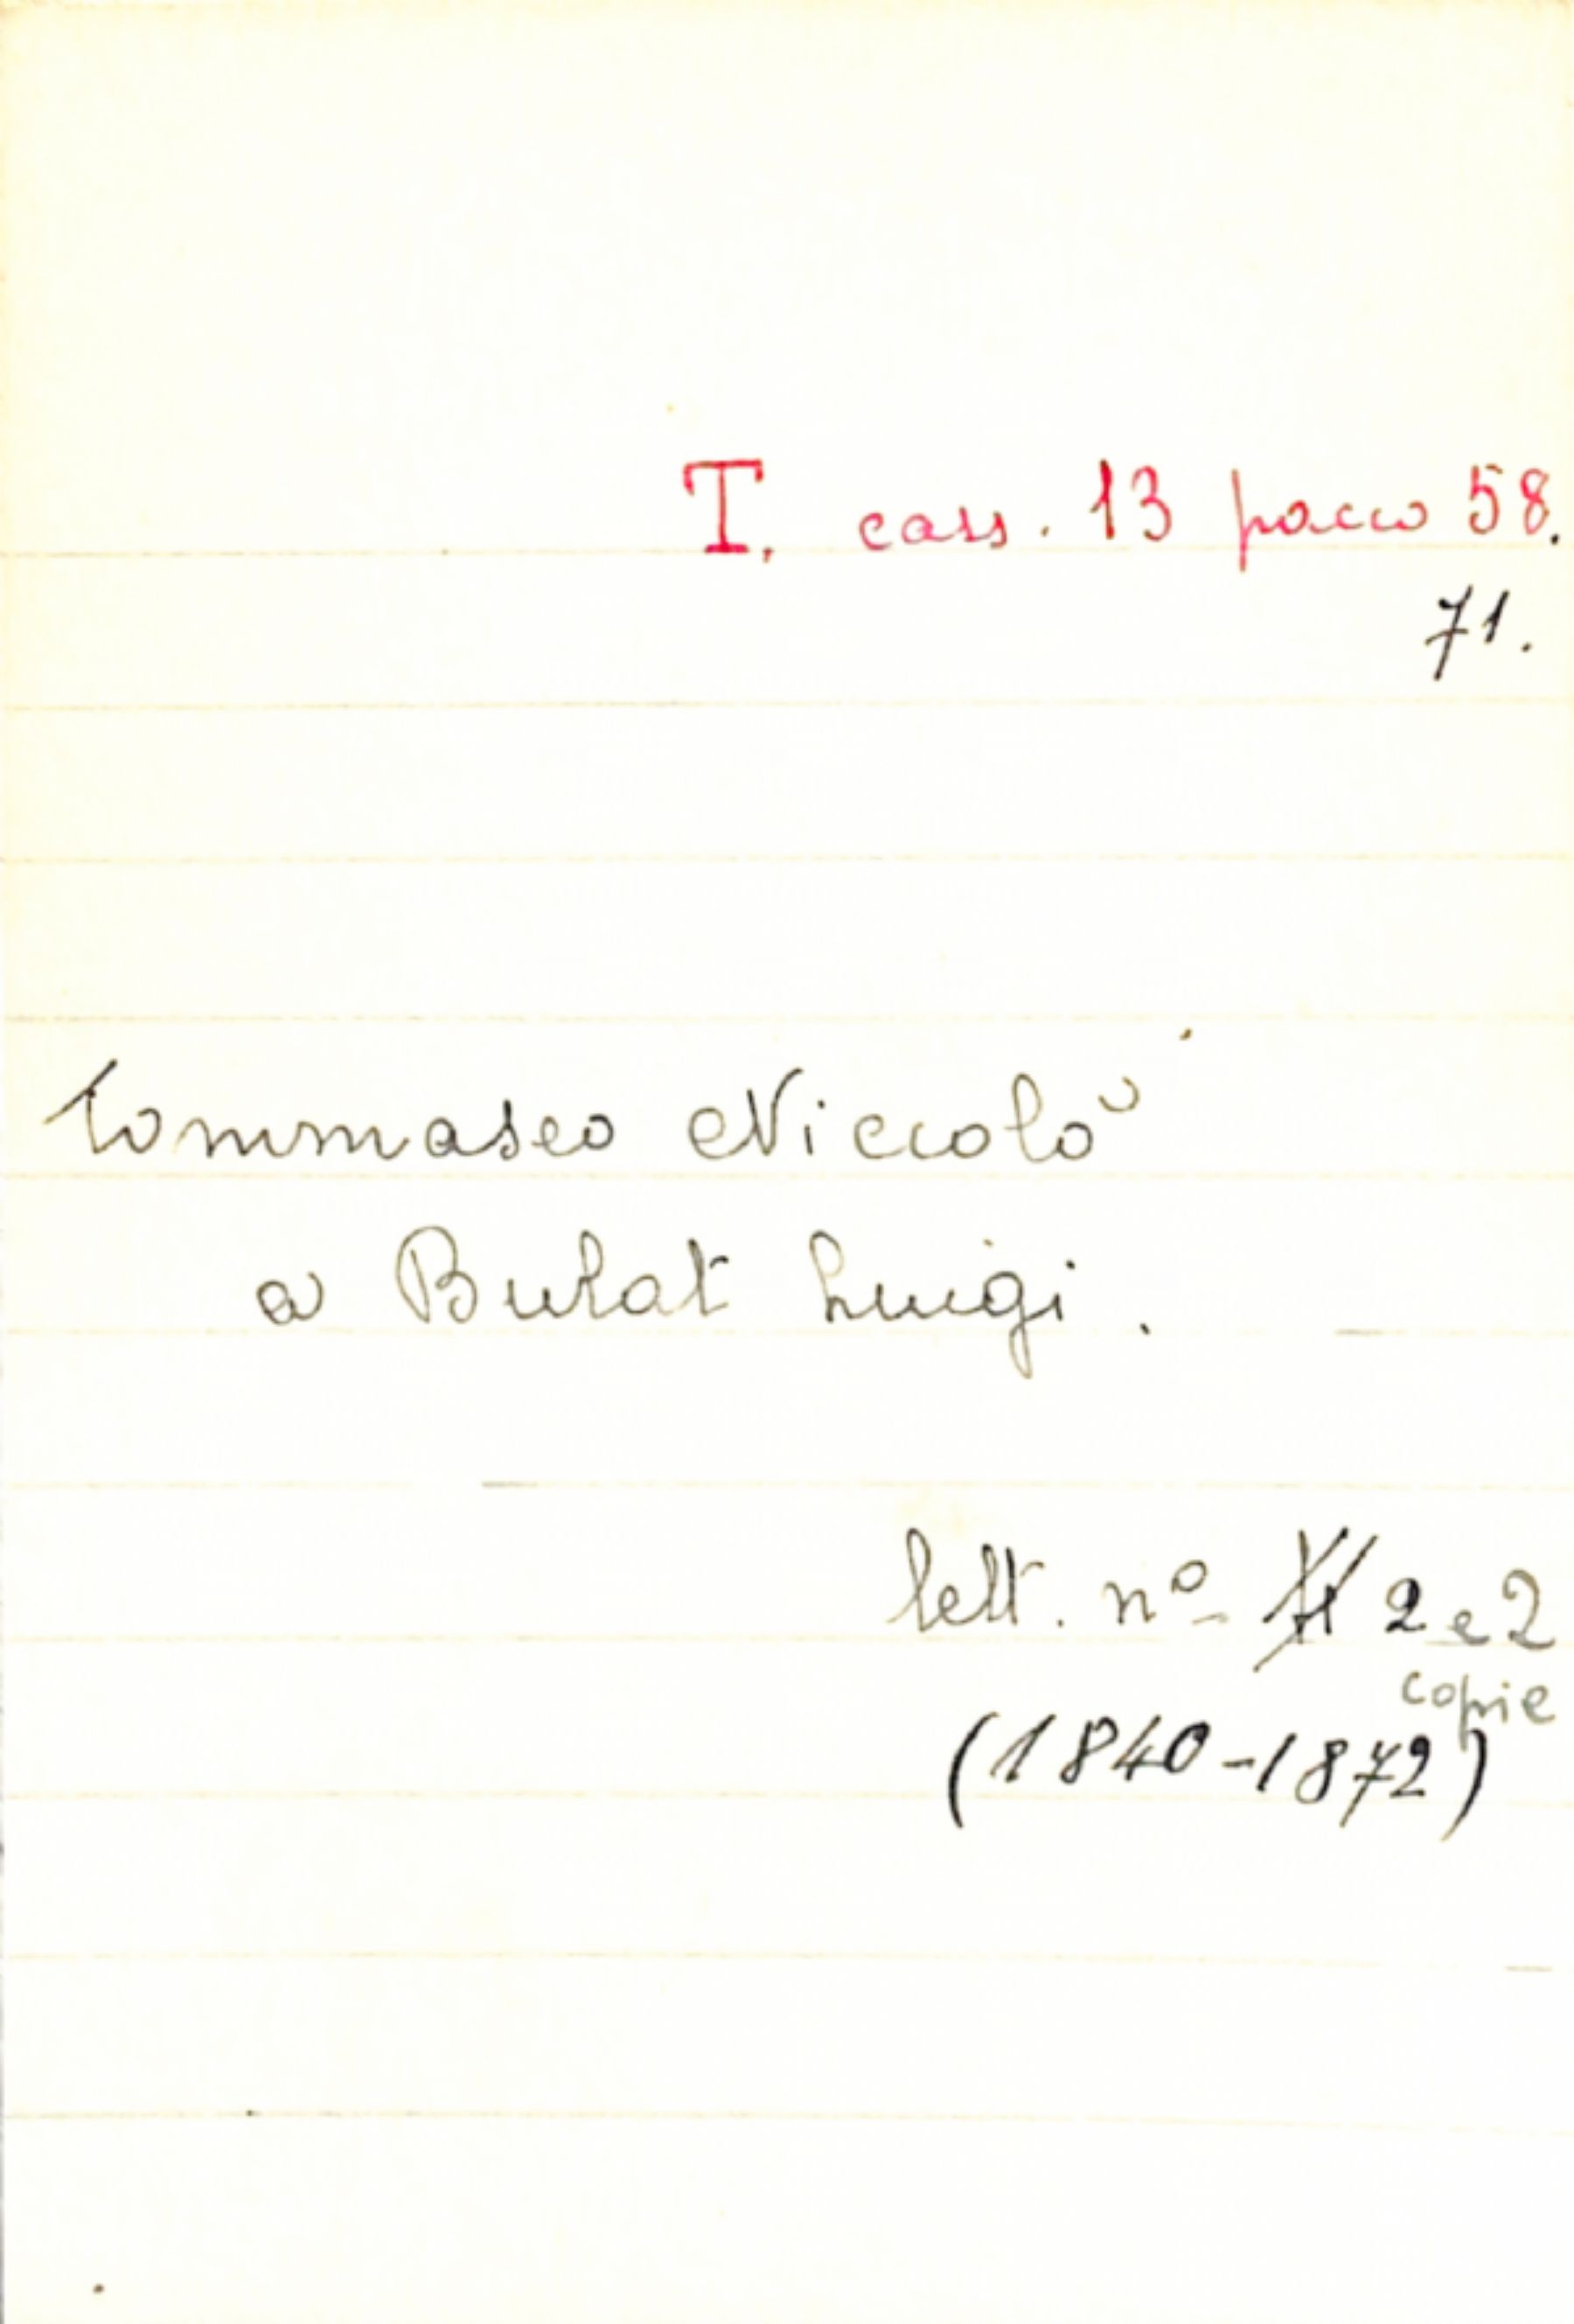 T. cass. 13 pacco 58.
71.
Tommaseo Niccolò
a Bulat Luigi.
lett. nº 2 e 2
copie
(1840-1872)